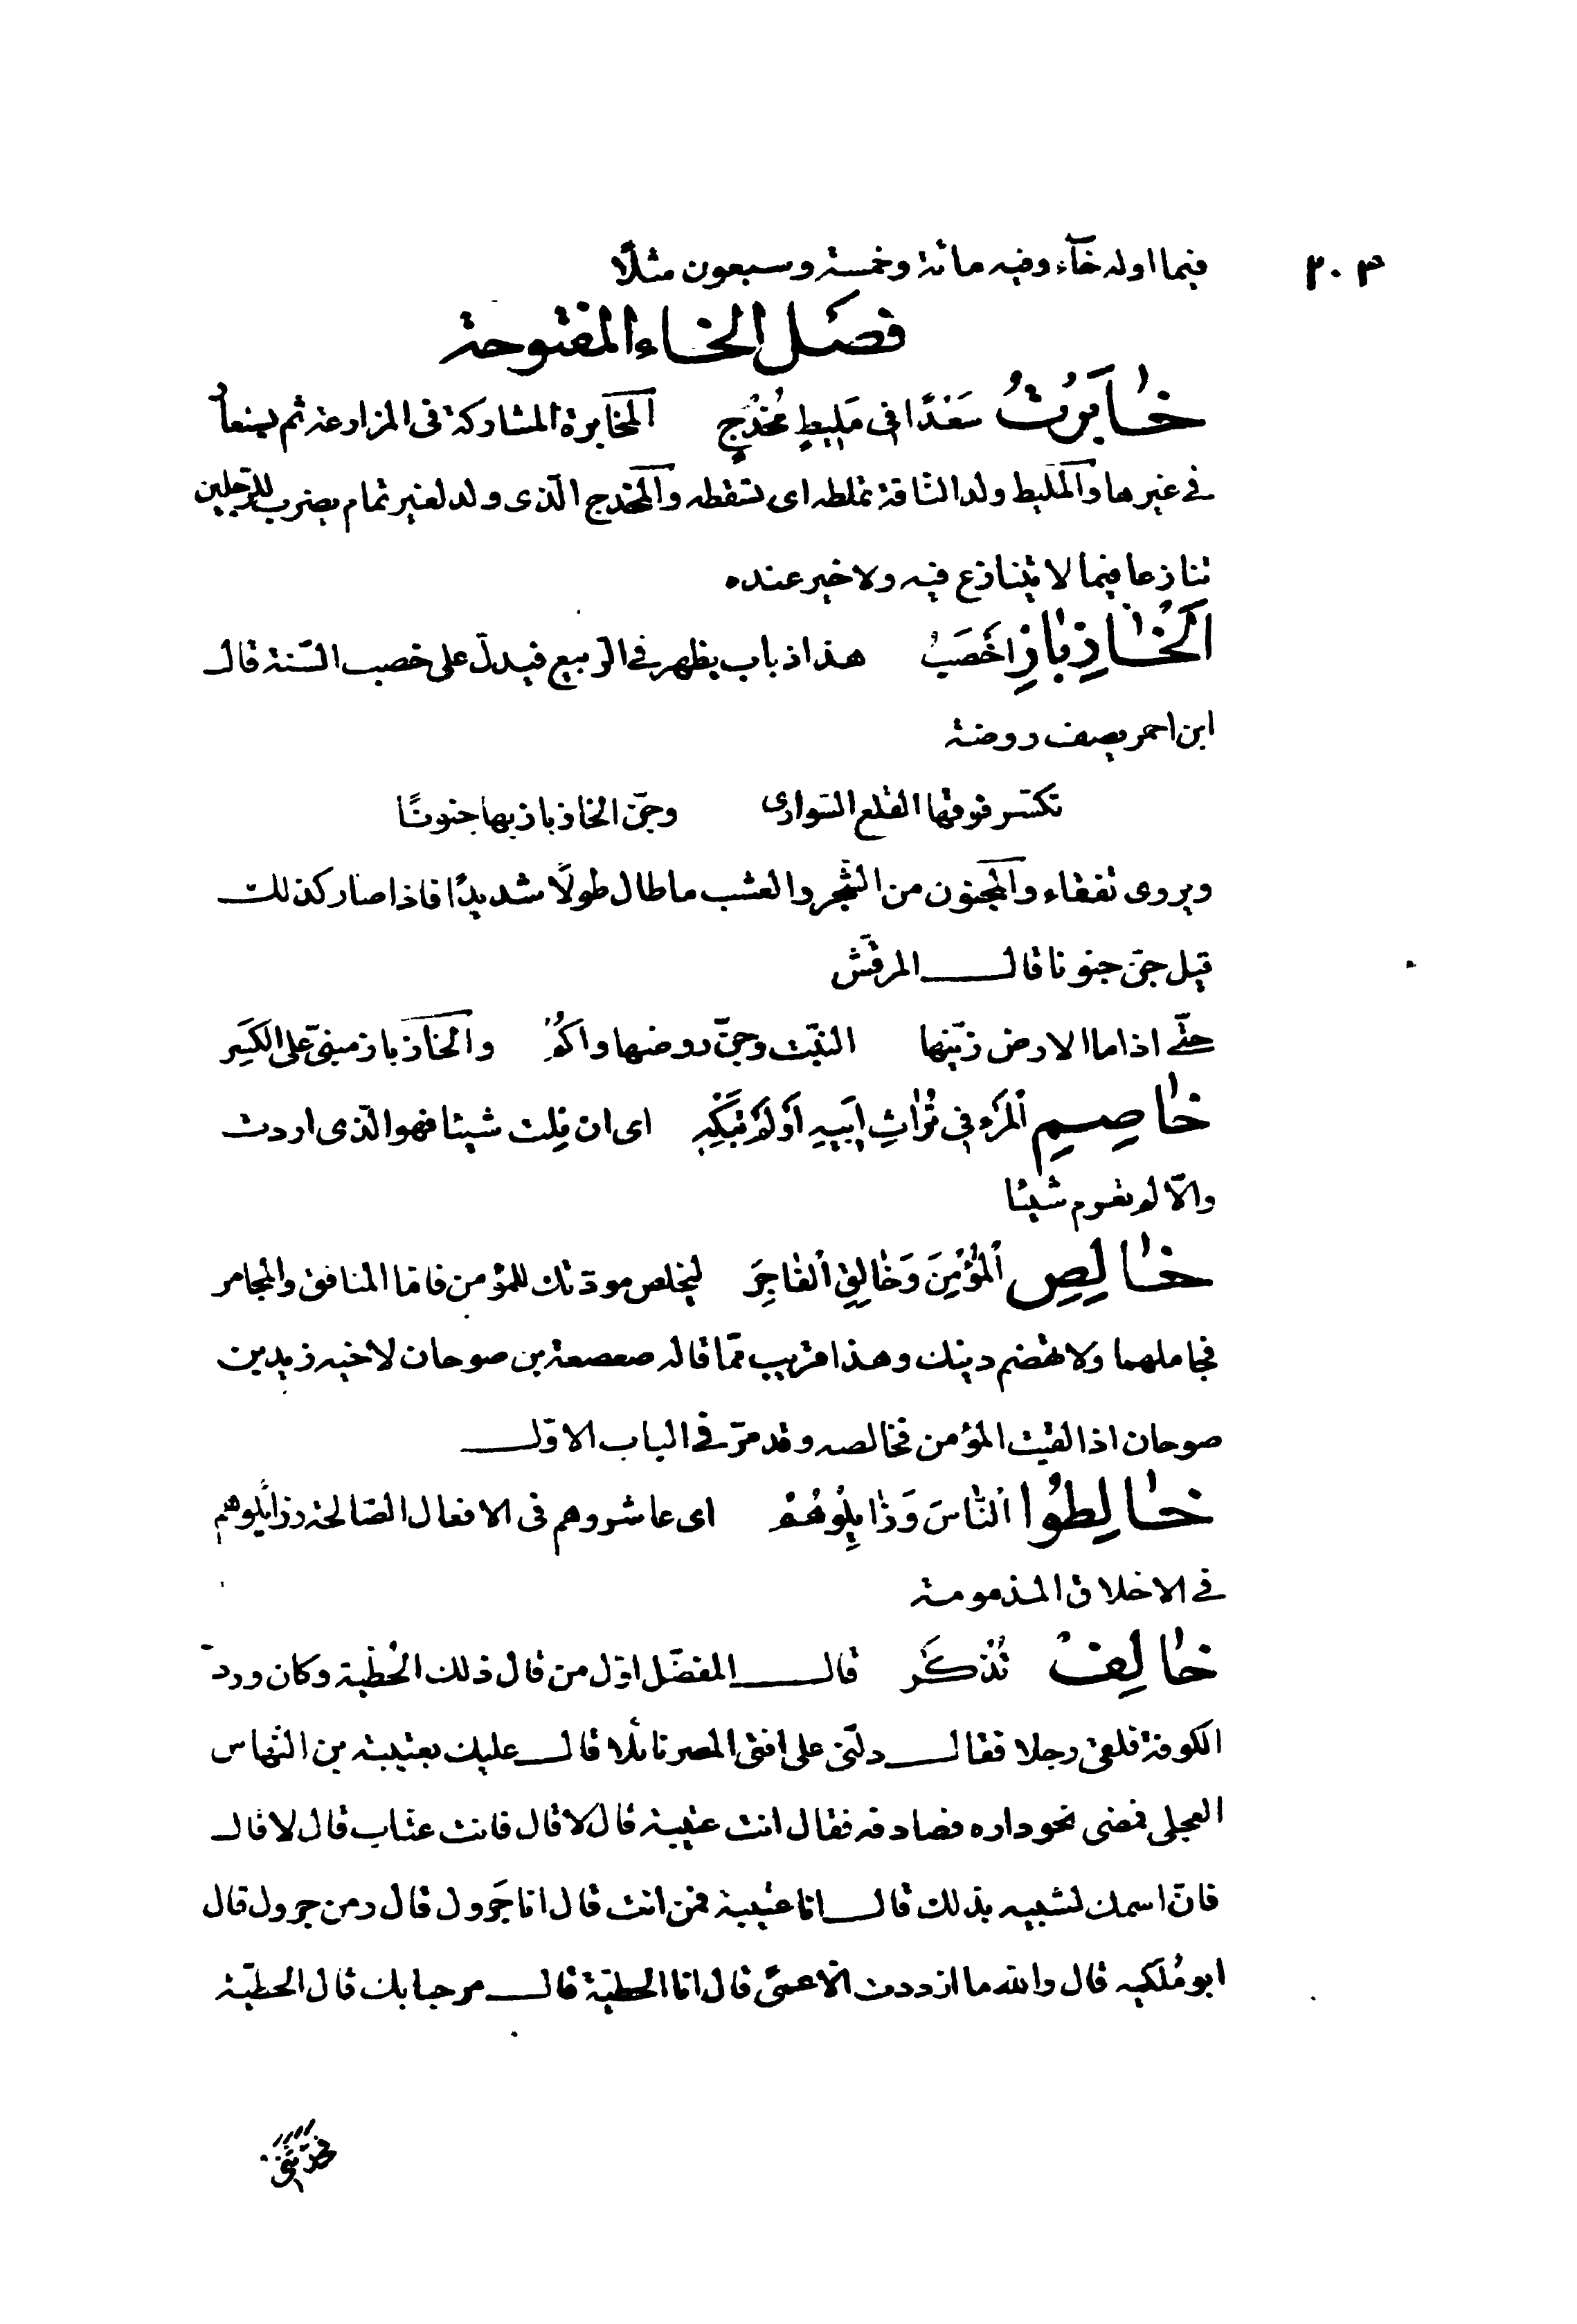 ٣٠٣
فيما اوله خآء وفيه مائة وخمسة وسبعون مثلًا
فصل الخاء المفتوحة
خَابَرْتُ سَعْدًا فى مَلِيطٍ مُخْدَجٍ المخابرة المشاركة فى المزارعة ثم يستعار
فى غيرها والمليط ولد الناقة تملطه اى تسقطه والمخدج الّذى ولد لغير تمام يضرب للرّجلين
تنازعا فيما لا يتنازع فيه ولا خير عنده
اَلْخَازِبَازِ اَخْصَبُ هذا ذباب يظهر فى الرّبيع فيدلّ على خصب السّنة قال
ابن احمر يصف روضة
تكسّر فوقها القلع السّوارى وجنّ الخازباز بها جنونًا
ويروى تفقاء والمجنون من الشّجر والعشب ما طال طولًا شديدًا فاذا صار كذلك
قيل جنّ جنونا قال المرقّش
حتّى اذا ما الارض زيّنها النبّت وجنّ روضها واكُمْ والخازباز مبنىّ على الكَسِر
خَاصِمِ اَلْمَرْءَ فِى تُرَاثِ اَبِيهِ اَوْ لَمْ تَبْكِهِ اى ان نِلت شيئا فهو الّذى اردت
والّا لم تغرم شيئا
خَالِصِ اَلْمُؤْمِنَ وَخَالِقِ اَلْفَاجِرَ ليخلص مودّتك للمؤمن فامّا المنافق والمجامر
فجاملهما ولا تهضم دينك وهذا قريب ممّا قاله صعصعة بن صوحان لاخيه زيد بن
صوحان اذا لقيت المؤمن فخالصه وقد مرّ فى الباب الاوّل
خَالِطُوا اَلنَّاسَ وَزَايِلُوهُمْ اى عاشروهم فى الافعال الصّالحة وزايلوهم
فى الاخلاق المذمومة
خَالِفْ تُذْكَرْ قال المفضّل اوّل من قال ذلك الحُطَيْئة وكان ورد
الكوفة فلقى رجلا فقال دلّنى على افتى المصر نائلا قال عليك بعتيبة بن النّهاس
العجلى فمضى نحو داره فصادفه فقال انت عتيبة قال لا قال فانت عتّاب قال لا قال
فانّ اسمك لشبيه بذلك قال انا عتيبة فمن انت قال انا جَرْول قال ومن جرول قال
ابو مُلَكية قال والله ما ازددت الّا عمىً قال انا الحطيّة قال مرحبا بك قال الحطيّة
فحدّثنى